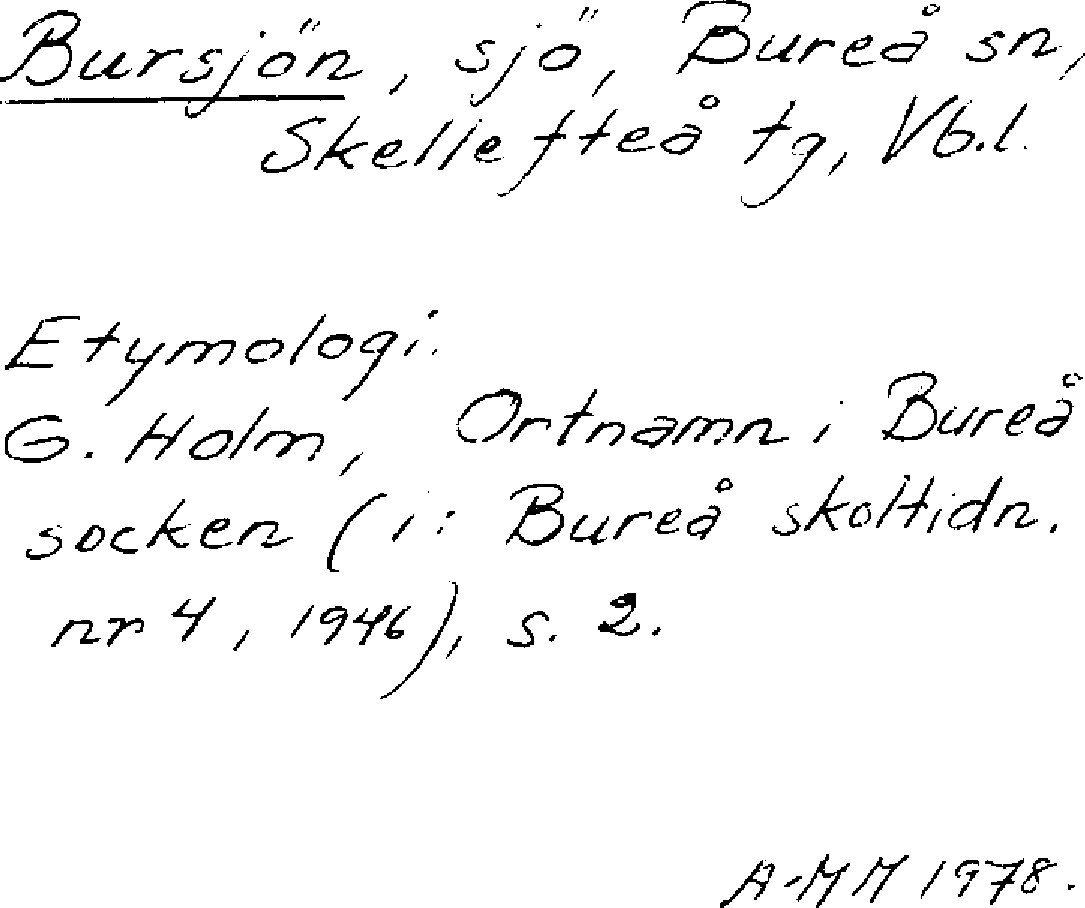 Bursjön, sjö, Bureå sn,
Skellefteå tg, Vb.l.
Etymologi.
G. Holm, Ortnamn i Bureå
socken (i: Bureå skoltidn.
nr 4, 1946), s. 2.
A-MM 1978.